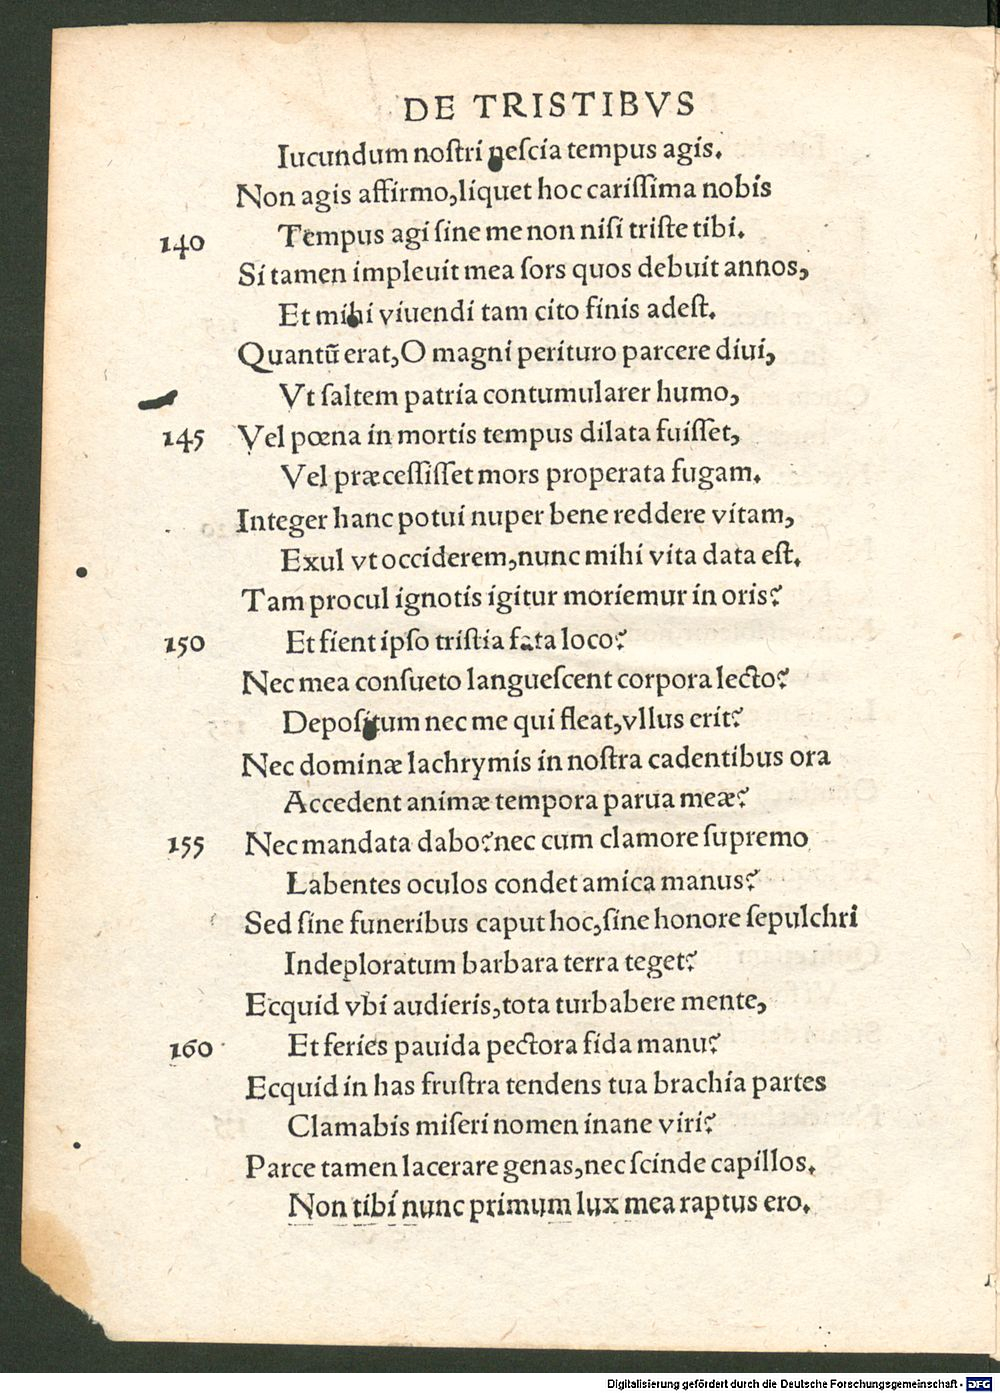 DE TRISTIBVS
Iucundum noſtri neſcia tempus agis.
Non agis affirmo,liquet hoc cariſſima nobis
140 Tempus agi ſine me non niſi triſte tibi.
Si tamen impleuit mea ſors quos debuit annos,
Et mihi viuendi tam cito finis adeſt.
Quantũ erat,O magni perituro parcere diui,
Vt ſaltem patria contumularer humo,
145 Vel pœna in mortis tempus dilata fuiſſet,
Vel præceſſiſſet mors properata fugam.
Integer hanc potui nuper bene reddere vitam,
Exul vt occiderem,nunc mihi vita data eſt.
Tam procul ignotis igitur moriemur in oris?
150 Et fient ipſo triſtia fata loco?
Nec mea conſueto langueſcent corpora lecto?
Depoſitum nec me qui fleat,vllus erit?
Nec dominæ lachrymis in noſtra cadentibus ora
Accedent animæ tempora parua meæ?
155 Nec mandata dabo?nec cum clamore ſupremo
Labentes oculos condet amica manus?
Sed ſine funeribus caput hoc,ſine honore ſepulchri
Indeploratum barbara terra teget?
Ecquid vbi audieris,tota turbabere mente,
160 Et feries pauida pectora fida manu?
Ecquid in has fruſtra tendens tua brachia partes
Clamabis miſeri nomen inane viri?
Parce tamen lacerare genas,nec ſcinde capillos.
Non tibi nunc primum lux mea raptus ero.
Digitalisierung gefördert durch die Deutsche Forschungsgemeinschaft - DFG